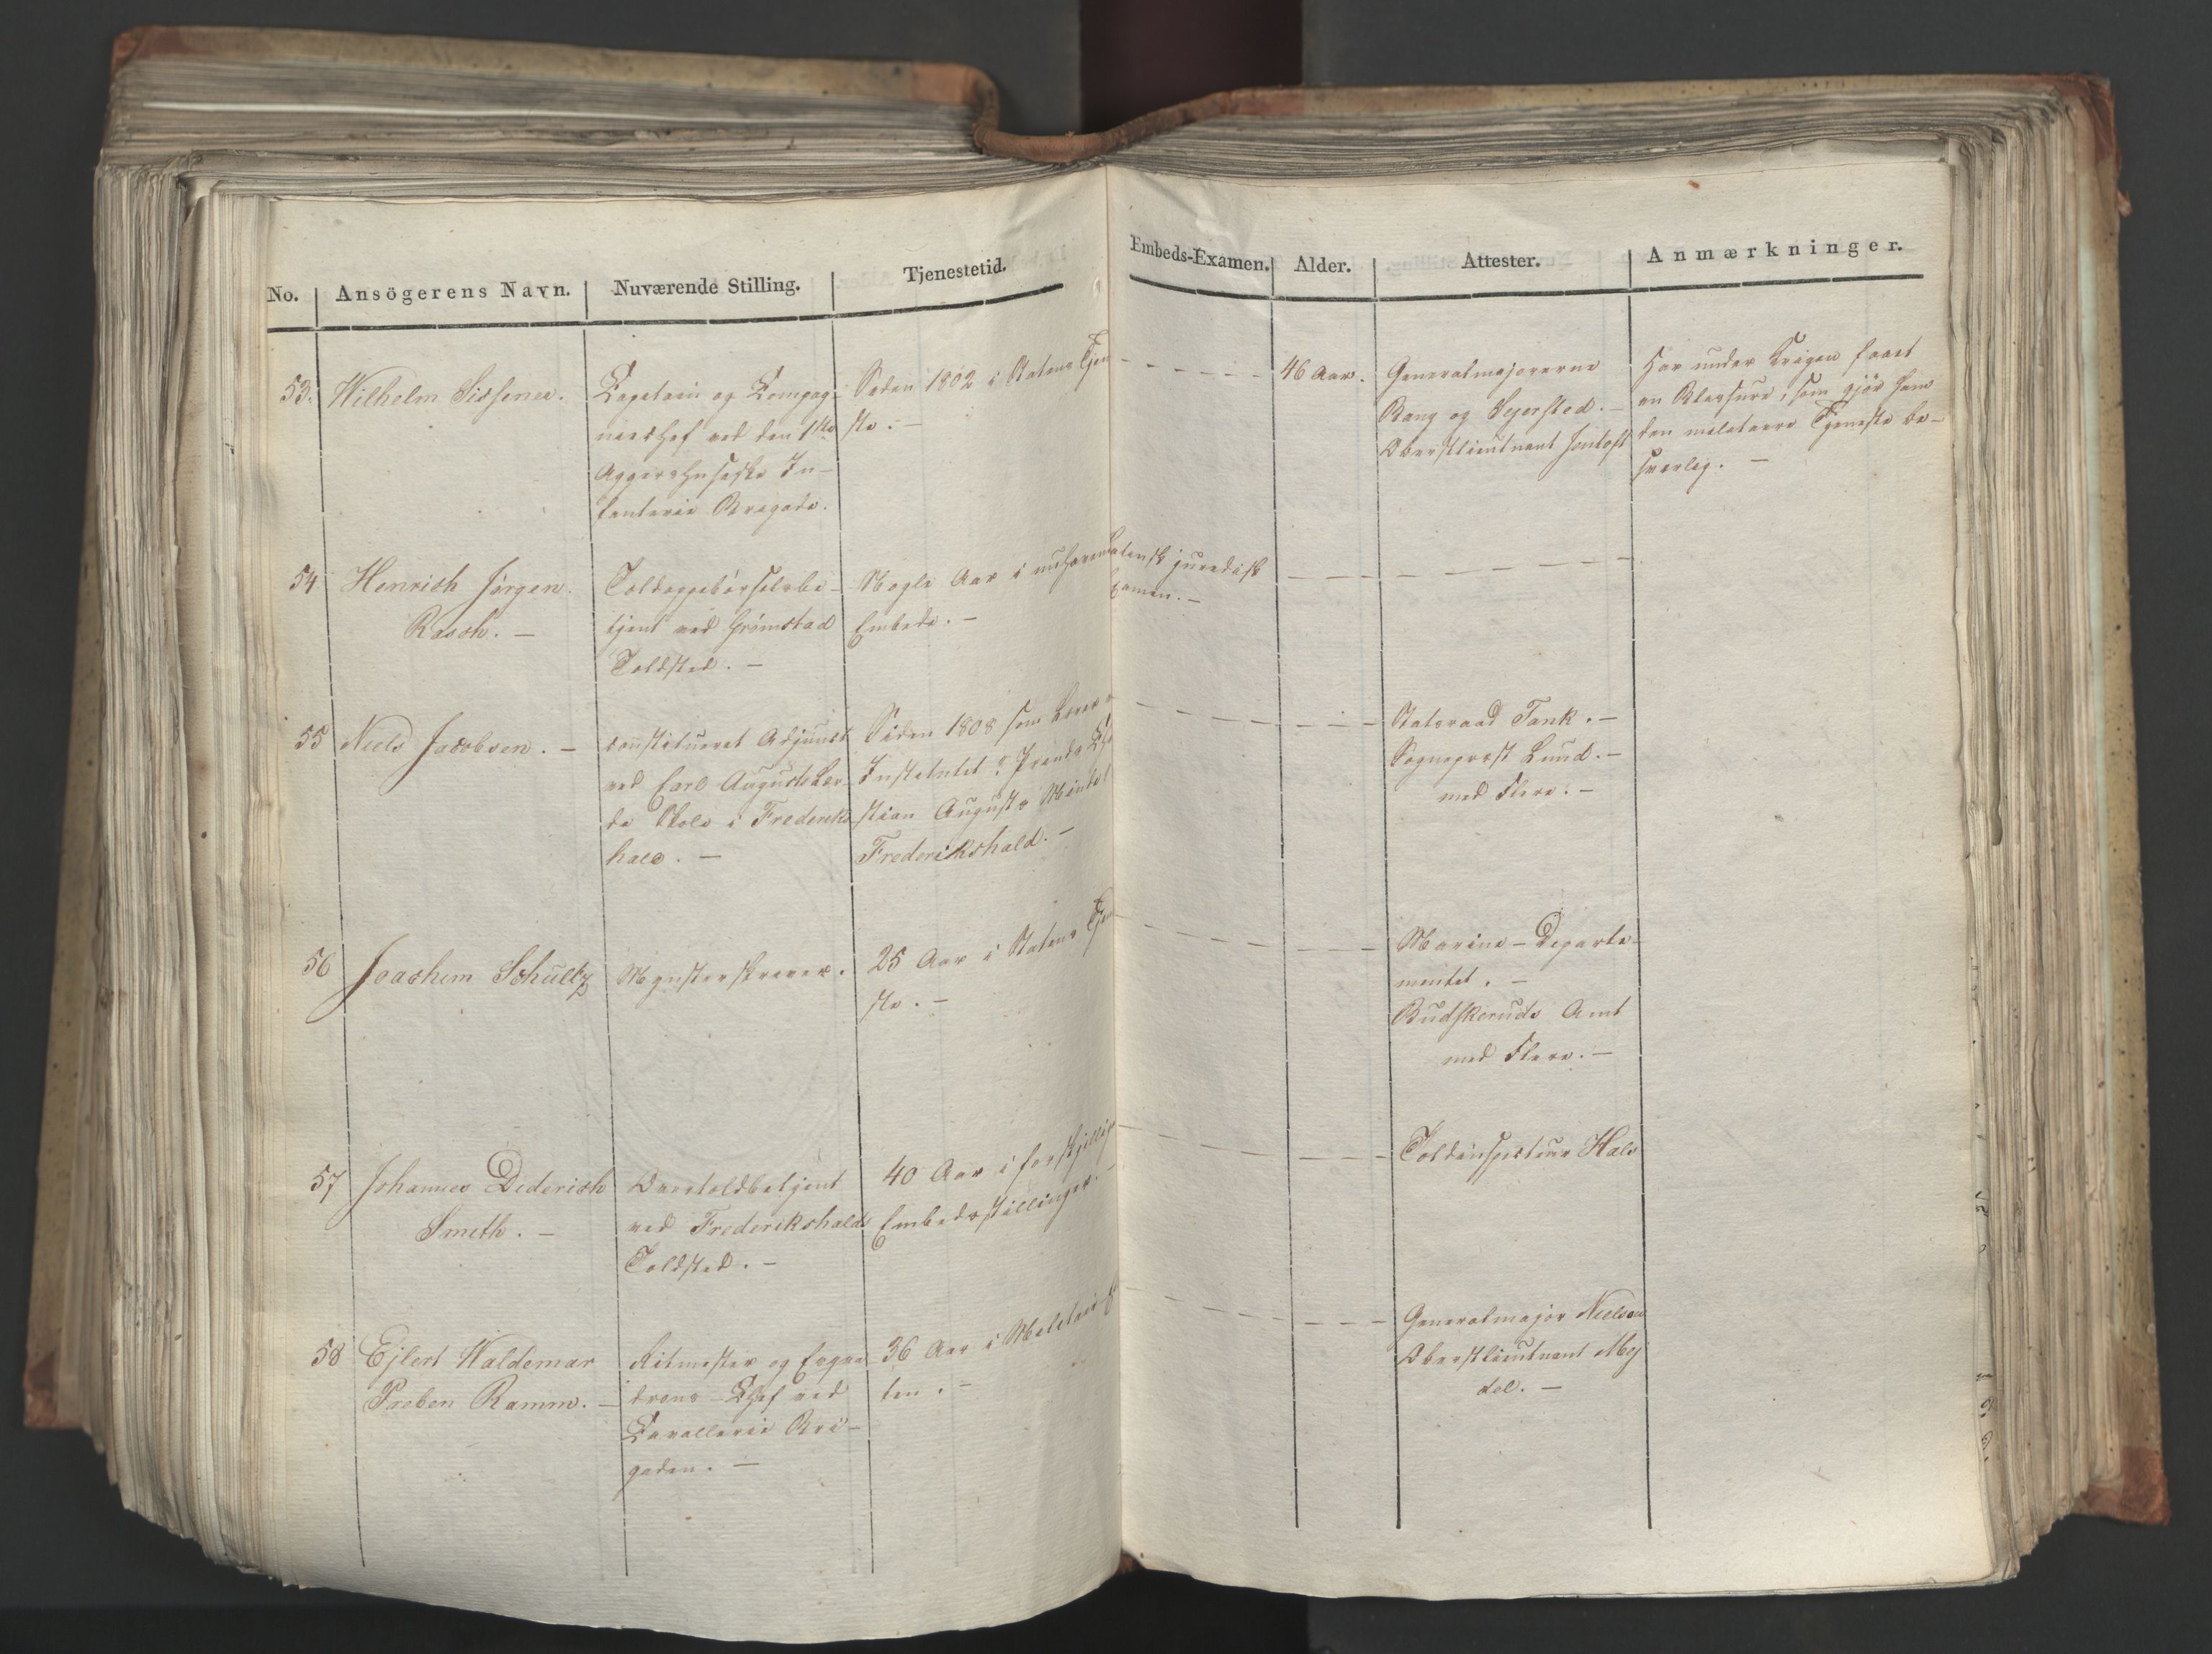 No. Ansögerens Navn. Nuværende Stilling. Tjenestetid. Embeds-Examen. Alder. Attester. Anmærkninger.
53. Wilhelm Sissener.
Capitain og Compag-
niechef ved den 1ste
Aggershusiske In-
fanterie Brigade.
Siden 1802 i Statens Tjene
ste. -
46 Aar.
Generalmajorerne
Bang og Sejersted. -
Oberstlieutnant
Har under Krigen faaet
en Blessure, som gjör ham
den militaire Tjeneste be-
sværlig. -
54 Henrich Jörgen
Rasch. -
Toldoppebörselsbe-
tjent ved Grömstad
Toldsted. -
Nogle Aar i nuhavende
Embede. -
Latinsk juridisk
Examen. -
55 Niels Jacobsen. -
constitueret Adjunct
ved Carl Augusts Lær-
de Skole i Frederiks
hald. -
Siden 1808 som Lærer v
Institutet: Prinds Chri
stian Augusts Minde i
Frederikshald. -
Statsraad Tank. -
Sognepræst Lund. -
med Flere. -
56 Joachim Schultz
Mynsterskriver.
25 Aar i Statens Tjene
ste. -
Marine-Departe-
mentet. -
Budskeruds Amt
med Flere. -
57 Johannes Diderich
Smith. -
Overtoldbetjent
ved Frederikshalds
Toldsted. -
40 Aar i forskjellige
Embedsstillinger. -
Toldinspecteur Hals
58 Ejlert Waldemar
Preben Ramm. -
Ritmester og Esqva
drons-Chef ved
Cavallerie Bri-
gaden. -
36 Aar i Militair
ten. -
Generalmajor Nielsen
Oberstlieutnant Mej
del. -